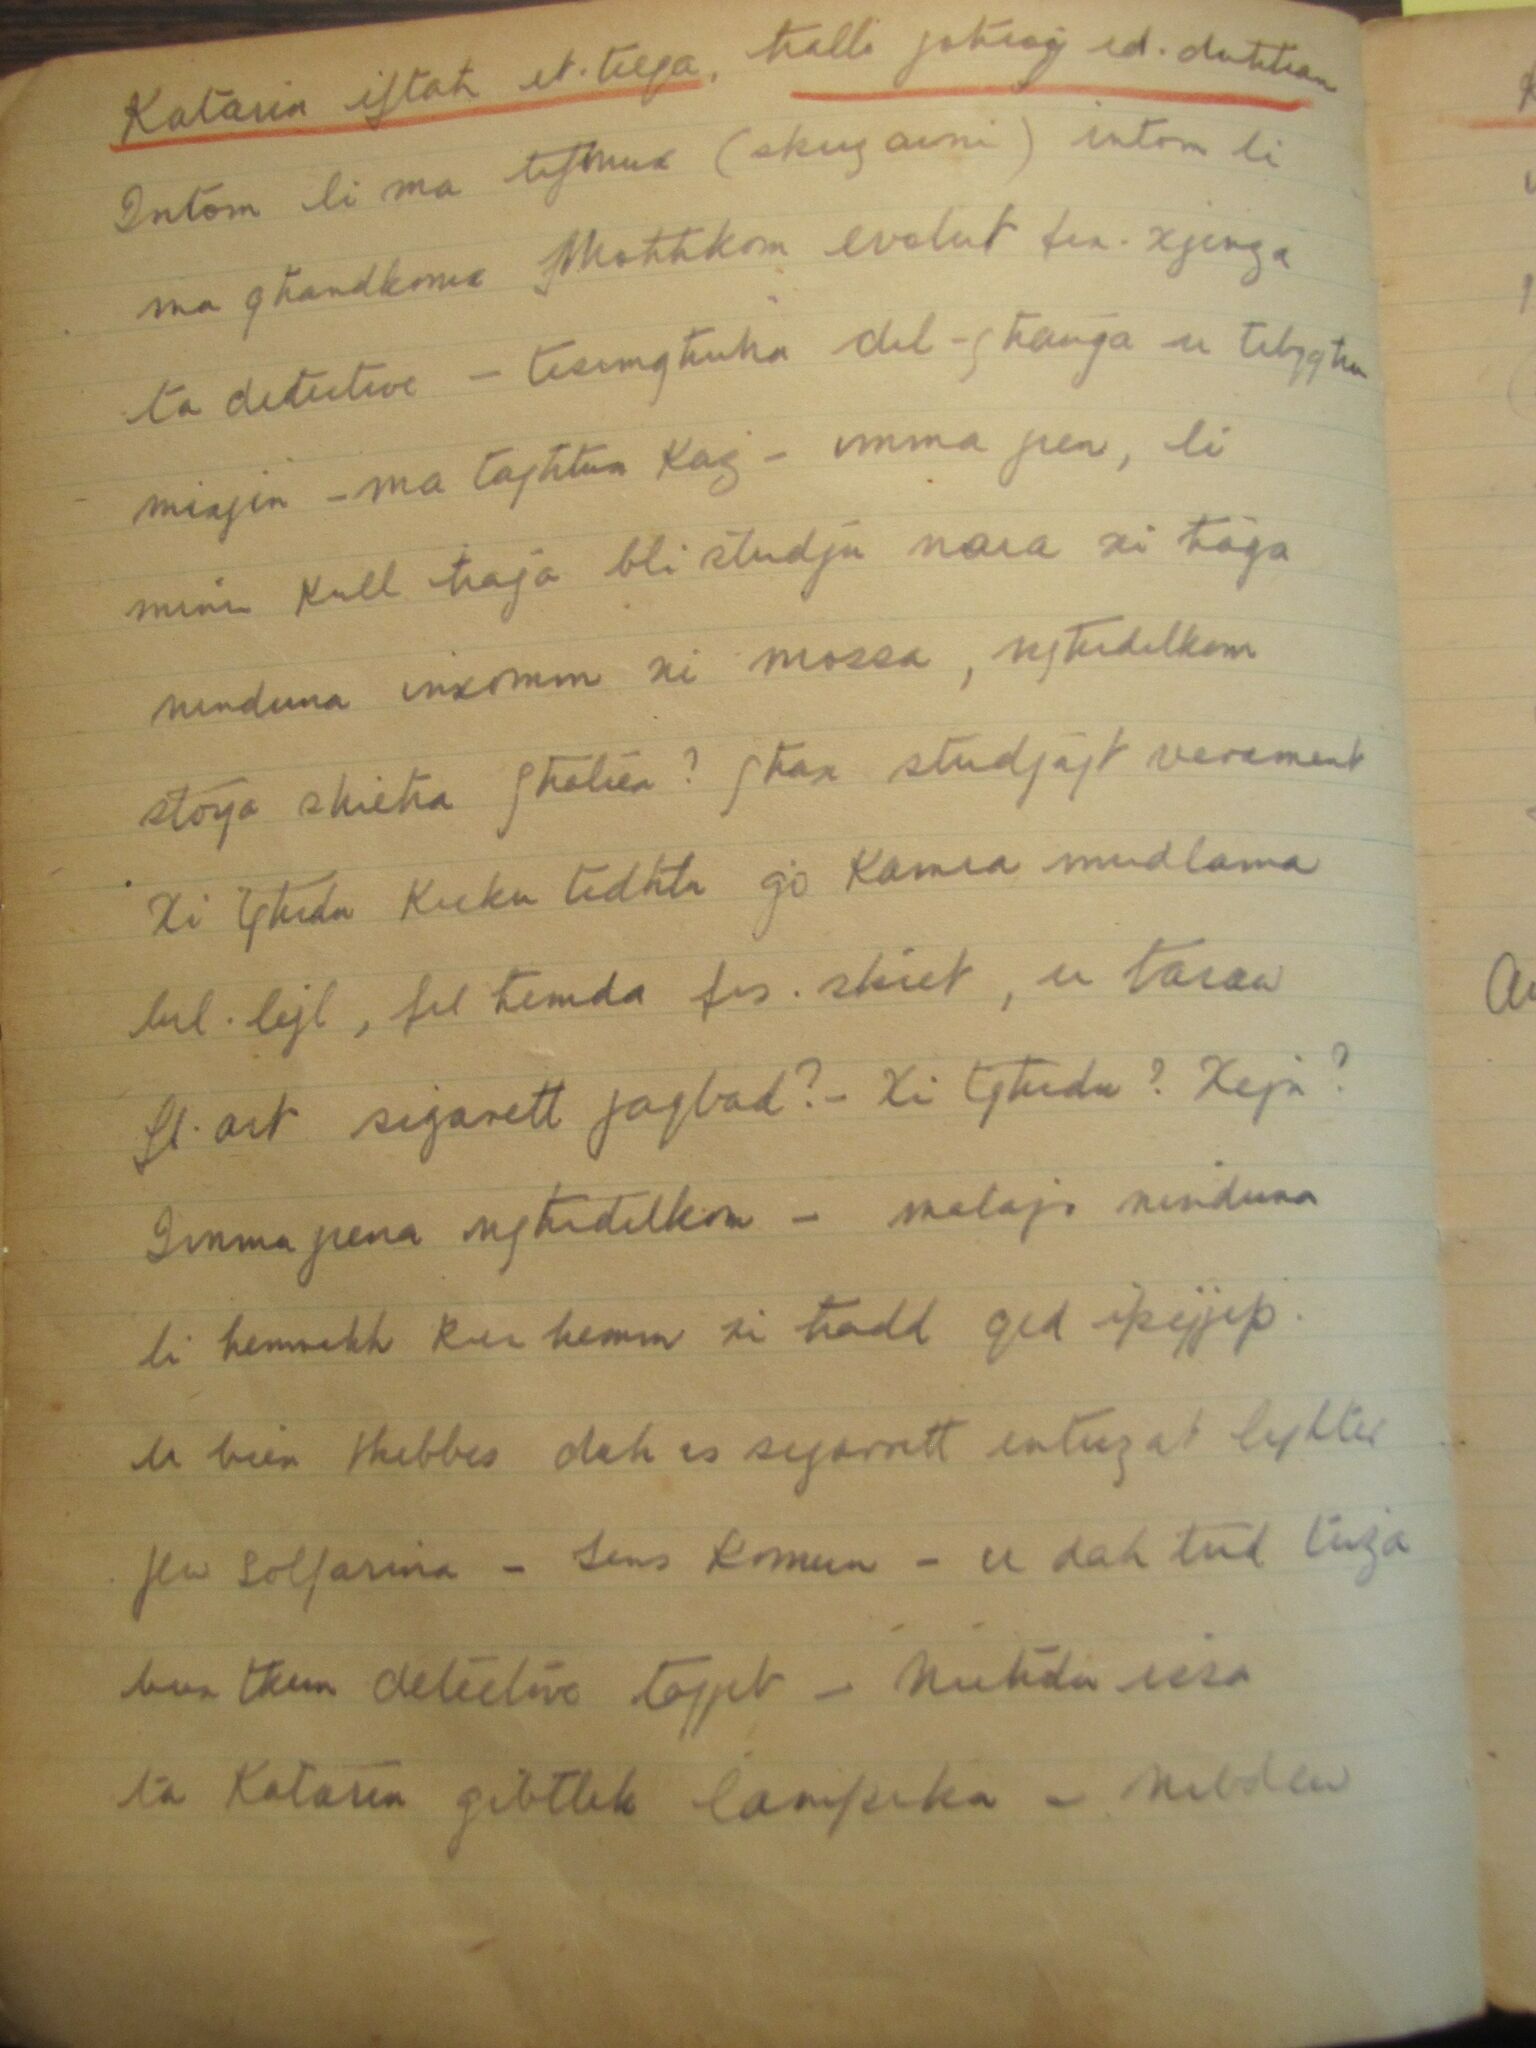 Katarin iftaħ it-tieqa, ħalli joħroġ id-duħħan
Intom li ma tifhmux (skużawni) intom li
ma għandkomx moħħkom evolut fix-xjenza
ta detective - tisimgħuha din-għanja u tibqgħu
mixjin - ma tagħtux kaz - imma jien, li
minn kull ħaġa bli studju nara xi ħaġa
ninduna inxomm xi mossa, ngħidilkom
storja sħiħa għaliex? għax studjajt verament
Xi tgħidu kieku tidħlu ġo kamra mudlama
bil-lejl, fil ħemda fis-skiet, u taraw
fl-art sigarett jaqbad? - Xi tgħidu? Xejn?
Imma jiena ngħidilkom - malajr ninduna
li hemmhekk kien hemm xi ħadd qed ipejjep.
u biex kebbes dak is sigarrett intuzat lighter
jew sulfarina - sens komun - u dak trid tuża
biex tkun detective tajjeb - Nieħdu issa
ta Katarin ġibtlek lampika - Nibdew